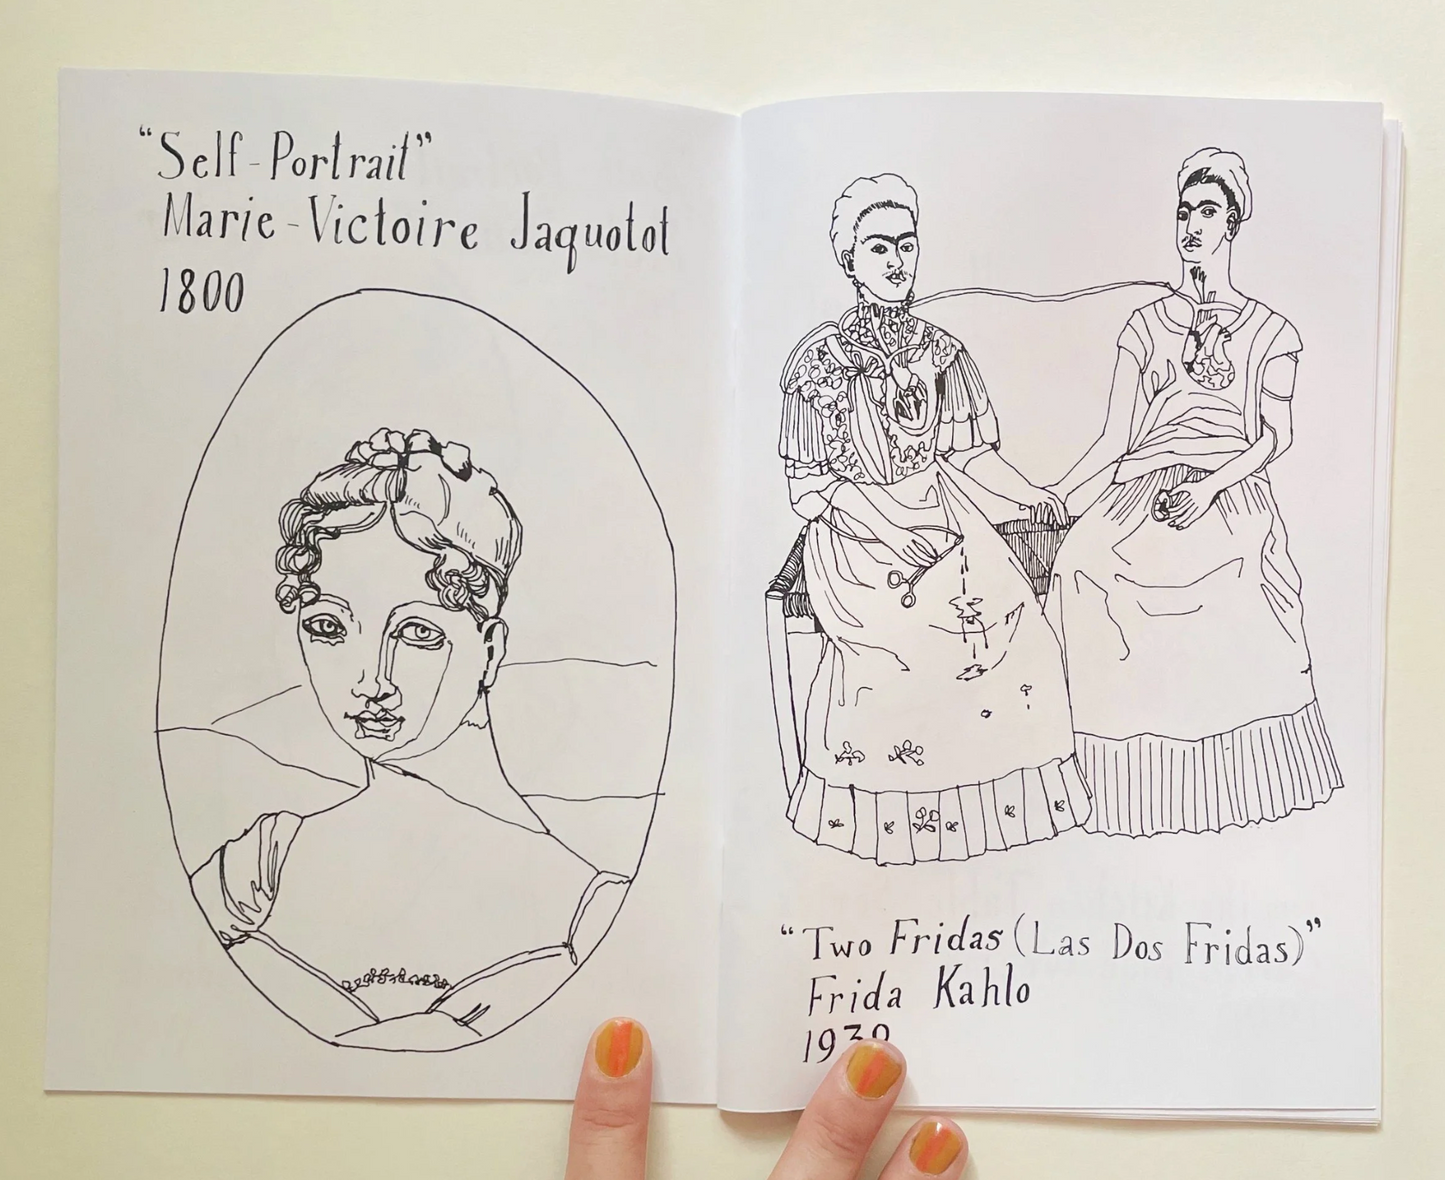 “Self-Portrait”
Marie-Victoire Jaquotot
1800
“Two Fridas (Las Dos Fridas)”
Frida Kahlo
1939